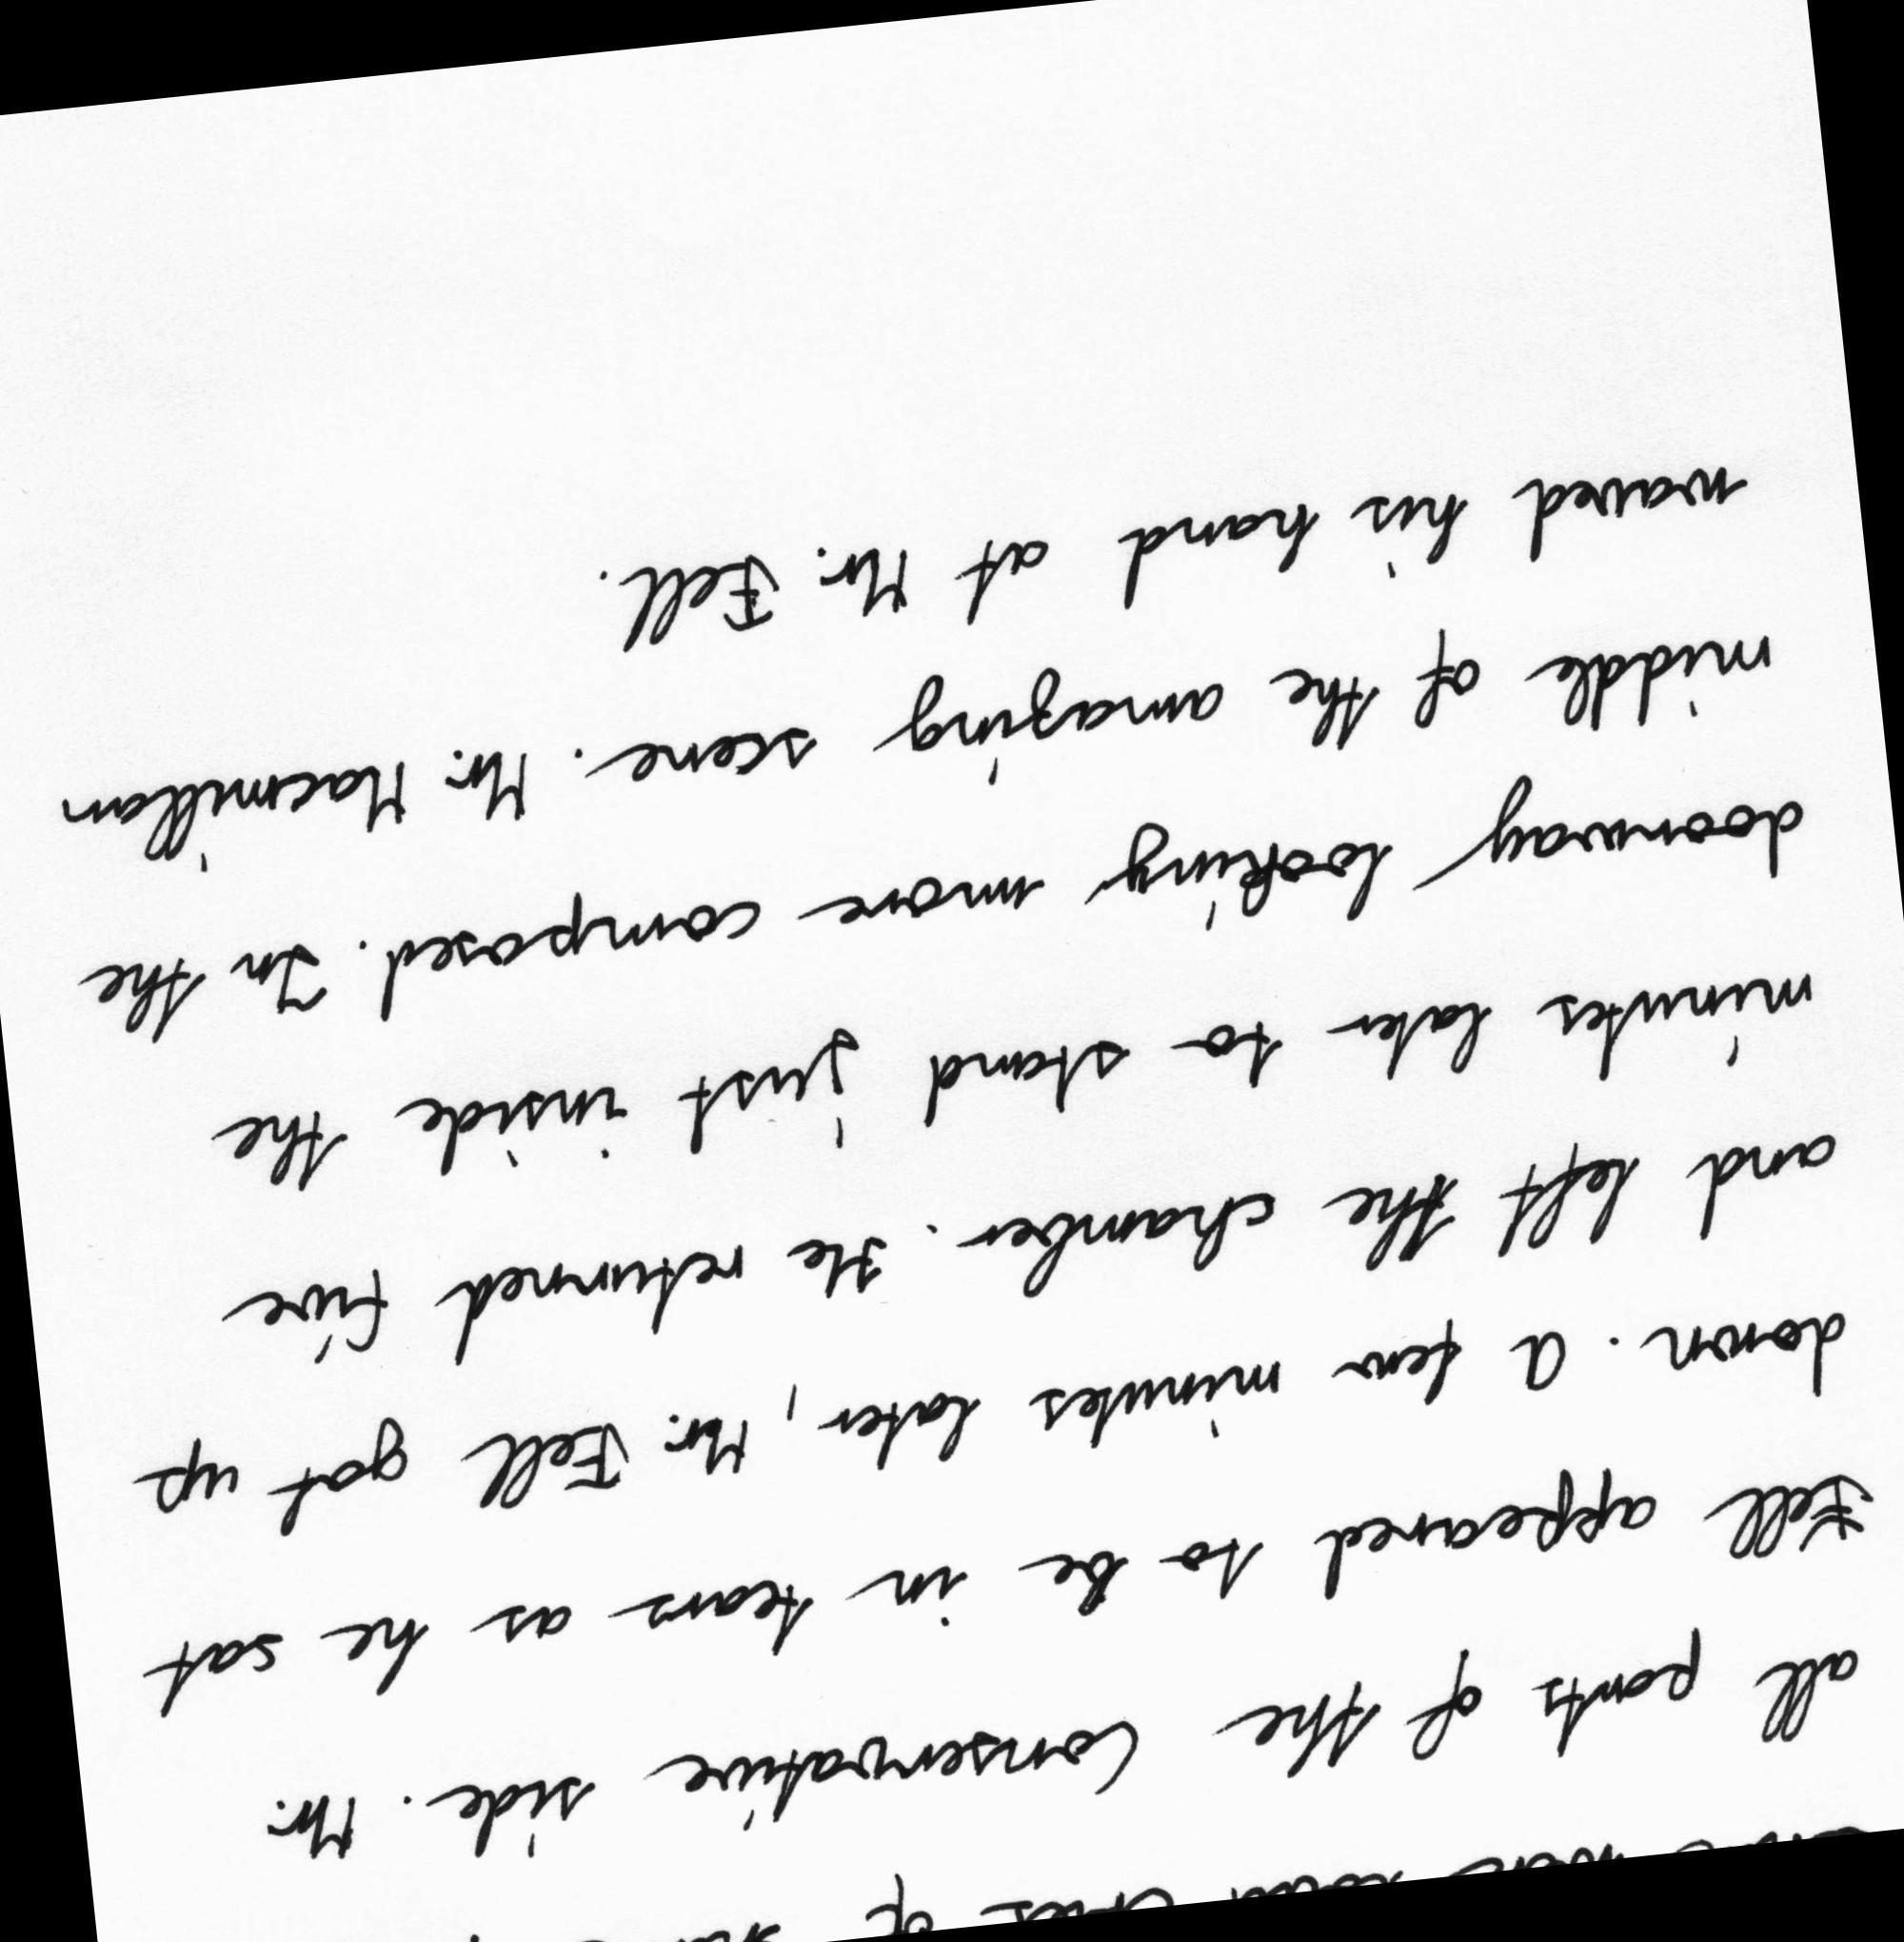 were loud cries of
all parts of the Conservative side. Mr.
Fell appeared to be in tears as he sat
down. A few minutes later, Mr. Fell got up
and left the chamber. He returned five
minutes later to stand just inside the
doorway looking more composed. In the
middle of the amazing scene. Mr. Macmillan
waved his hand at Mr. Fell.